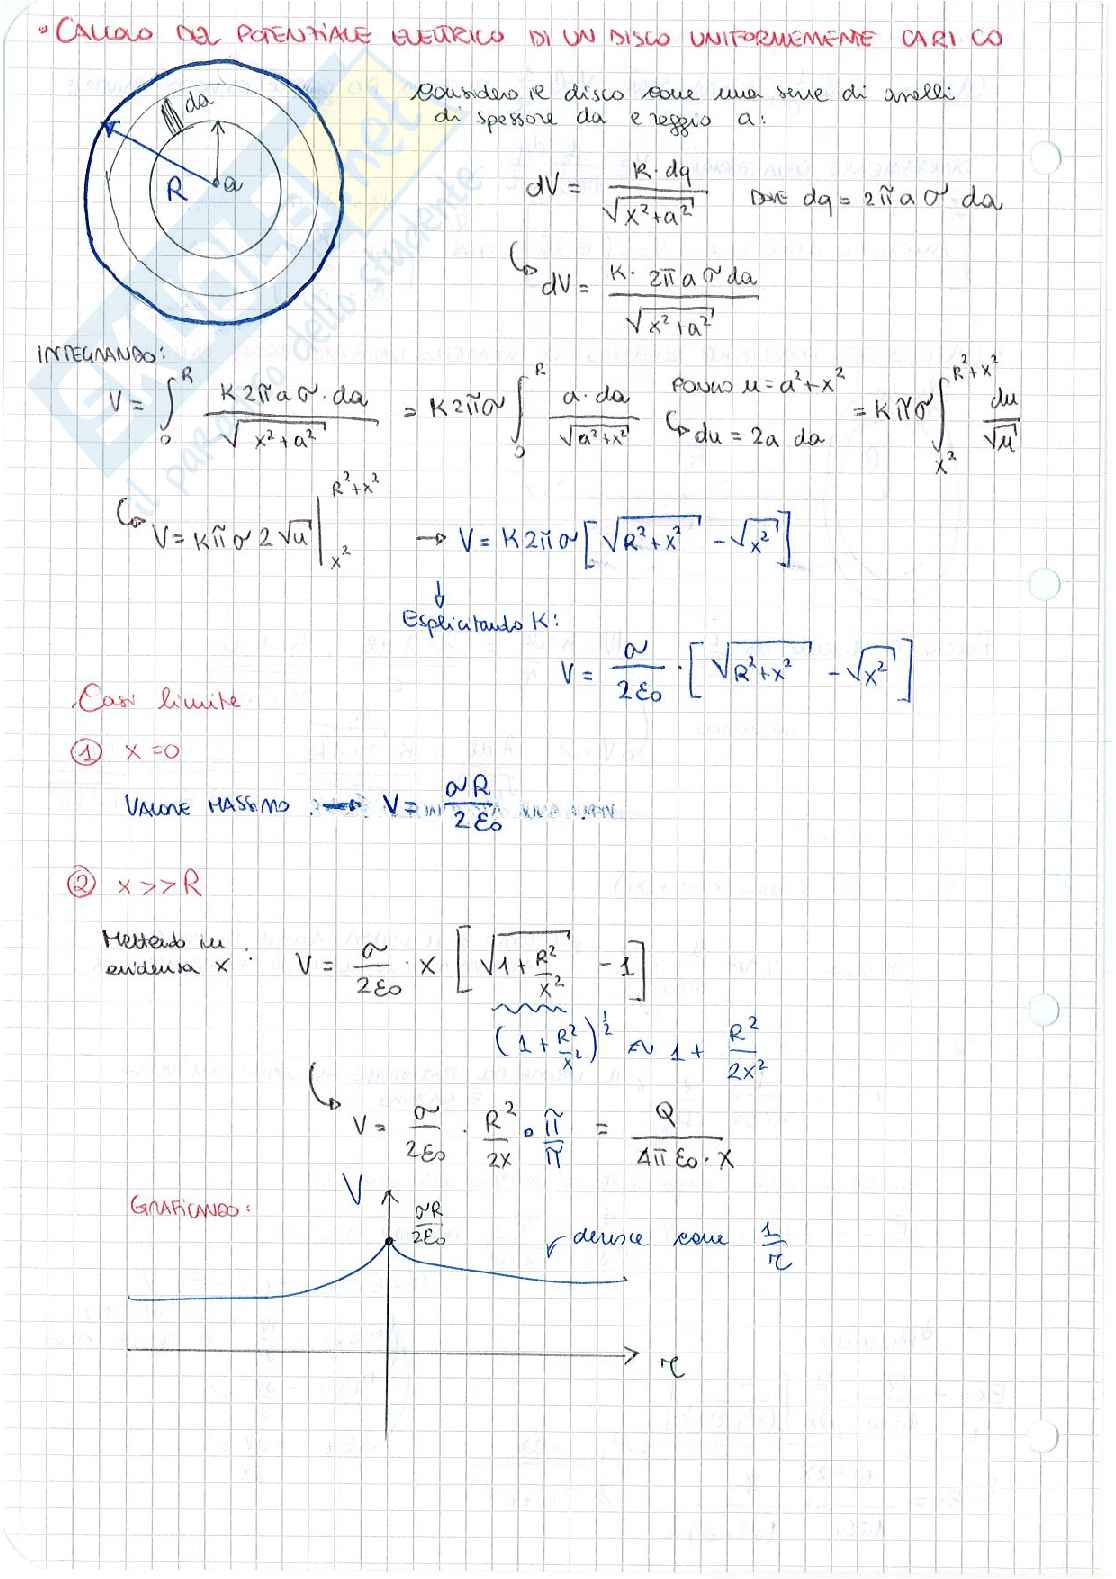 • CALCOLO DEL POTENZIALE ELETTRICO DI UN DISCO UNIFORMEMENTE CARICO
da
R
a
Considero il disco come una serie di anelli
di spessore da e raggio a:
dV = K·dq / √(x²+a²) DOVE dq = 2πaσ·da
↳ dV = K·2πaσda / √(x²+a²)
INTEGRANDO:
V = ∫₀ᴿ K2πaσ·da / √(x²+a²) = K2πσ ∫₀ᴿ a·da / √(a²+x²) PONGO u = a²+x² ↳ du = 2a da = Kπσ ∫_{x²}^{R²+x²} du/√u
↳ V = Kπσ2√u |_{x²}^{R²+x²} → V = K2πσ[√(R²+x²) - √x²]
↓
Esplicitando K:
V = σ/2ε₀ · [√(R²+x²) - √x²]
Casi limite
① x = 0
VALORE MASSIMO : → V = σR/2ε₀
② x >> R
Mettendo in
evidenza x : V = σ/2ε₀ · x [√(1+R²/x²) - 1]
(1+R²/x²)^½ ≈ 1 + R²/2x²
↳ V = σ/2ε₀ · R²/2x · π/π = Q / 4πε₀·x
GRAFICANDO:
V
σR/2ε₀
come 1/r
r
EXNET
il paradiso dello studente